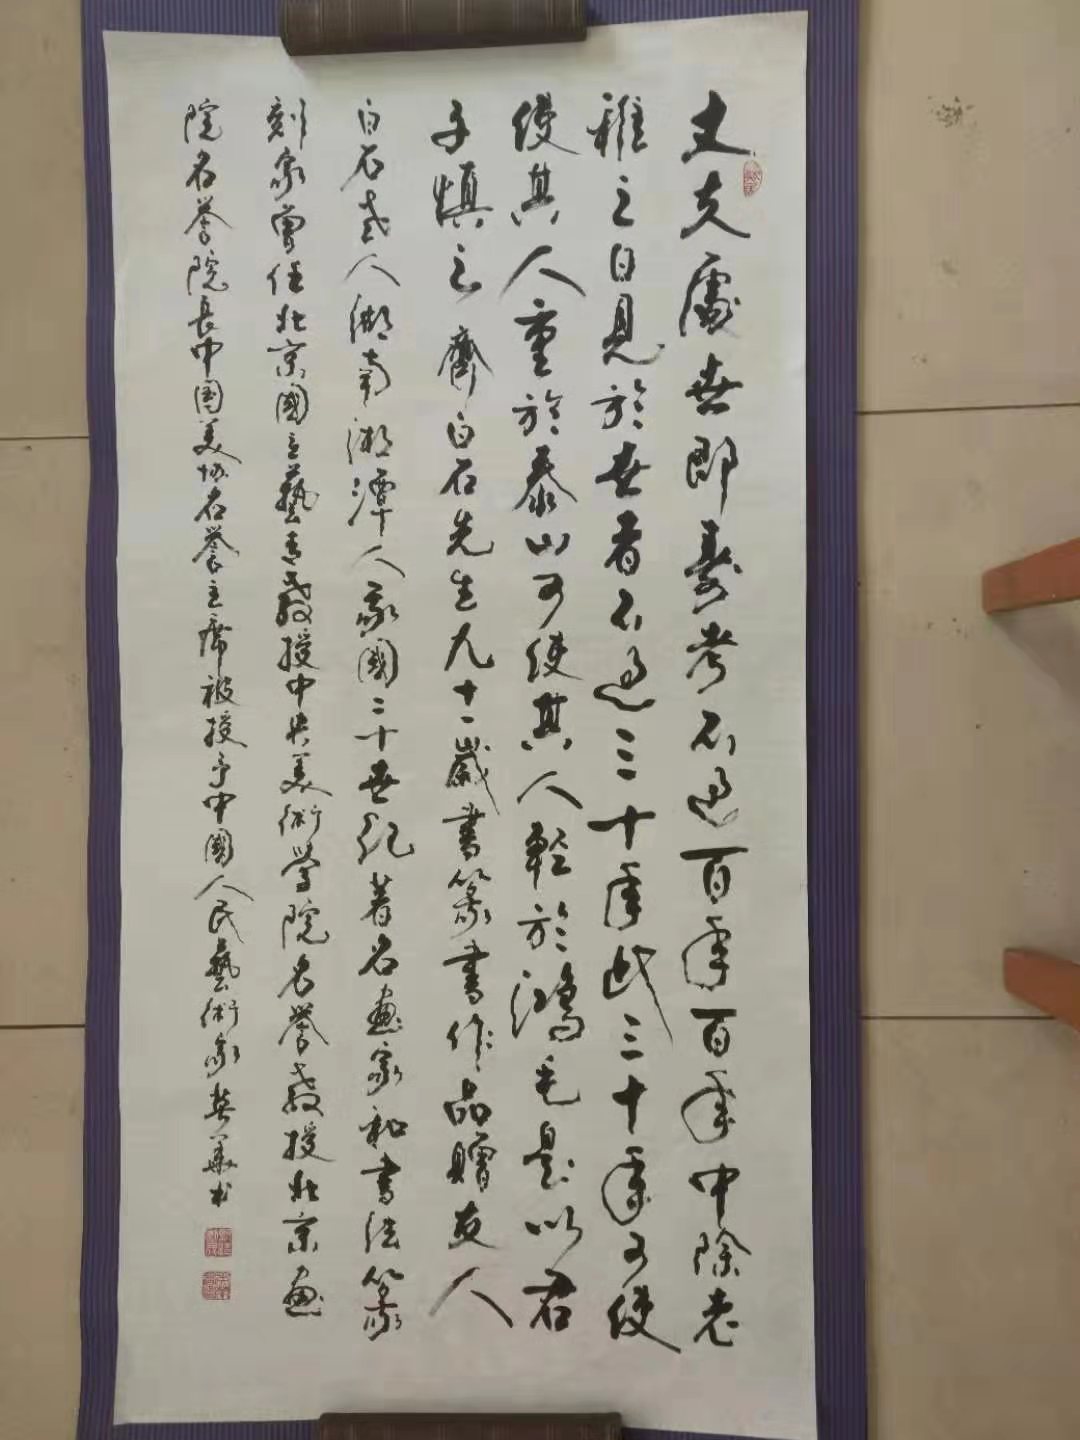 丈夫處世即壽考不過百年百年中除老
稚之日見於世者不過三十年此三十年可使
使其人重於泰山可使其人輕於鴻毛是以君
子慎之 齊白石先生九十一歲書篆書作品贈友人
白石老人湖南湘潭人我國二十世紀著名畫家和書法篆
刻家曾任北京國立藝專教授中央美術學院名譽教授北京畫
院名譽院長中国美协名誉主席被授予中國人民藝術家 英華书